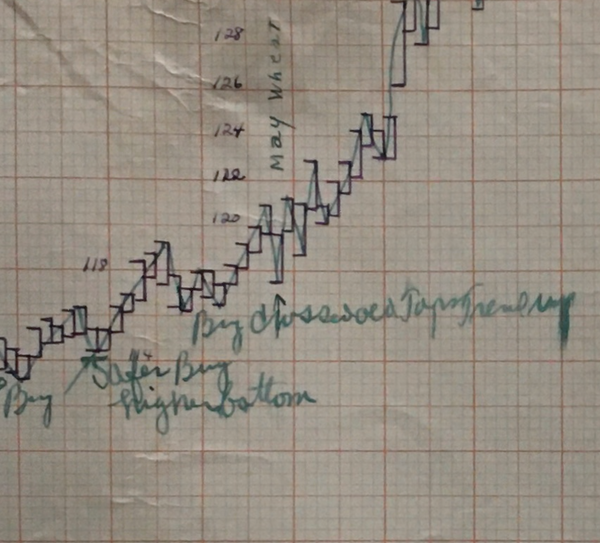 128
126
May Wheat
124
122
120
118
Buy crossed old Tops Trend up
Safer Buy
higher bottom
Buy